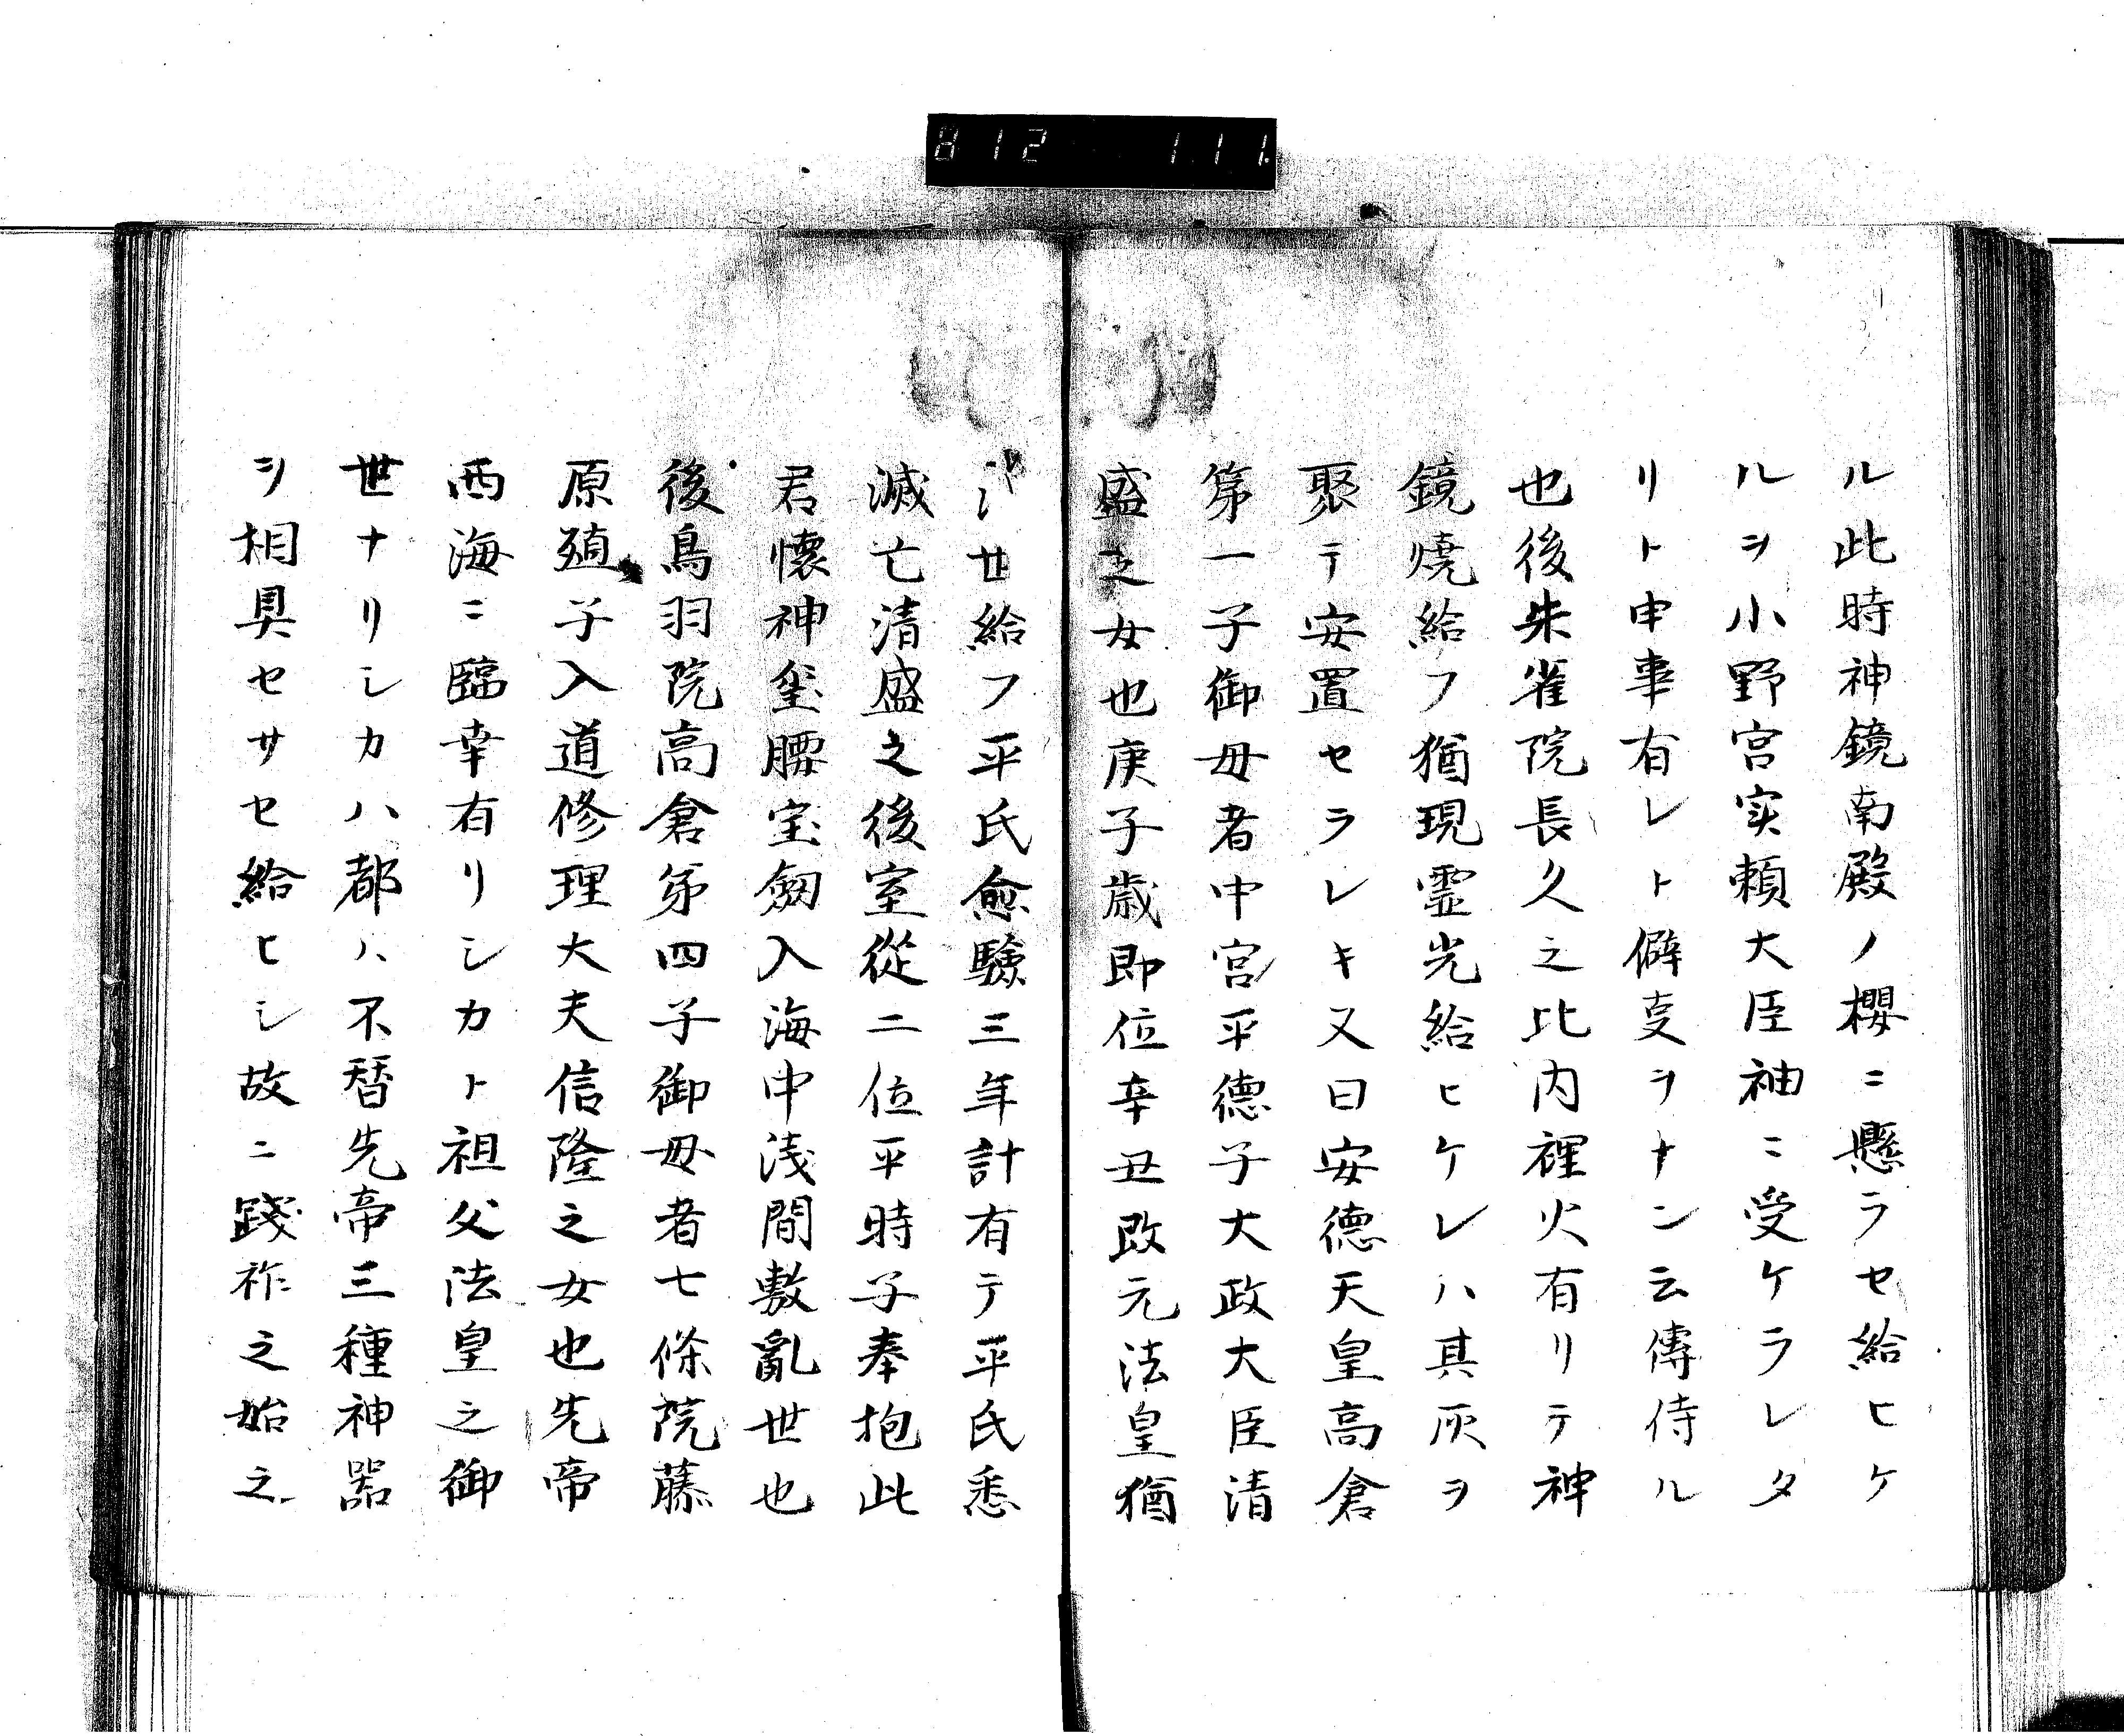 812 111.
ル此時神鏡南殿ノ櫻ニ懸ラセ給ヒケ
ルヲ小野宮実頼大臣袖ニ受ケラレタ
リト申事有レト僻叓ヲナン云傳侍ル
也後朱雀院長久之比内裡火有リテ神
鏡焼給フ猶現霊光給ヒケレハ其灰ヲ
聚テ安置セラレキ又曰安徳天皇高倉
第一子御母者中宮平徳子大政大臣清
盛之女也庚子歳即位辛丑改元法皇猶
世給フ平氏愈驗三年計有テ平氏悉
滅亡清盛之後室從二位平時子奉抱此
君懐神璽腰宝劔入海中浅間敷亂世也
後鳥羽院高倉第四子御母者七條院藤
原殖子入道修理大夫信隆之女也先帝
西海ニ臨幸有リシカト祖父法皇之御
世ナリシカハ都ハ不替先帝三種神器
ヲ相具セサセ給ヒシ故ニ踐祚之始之